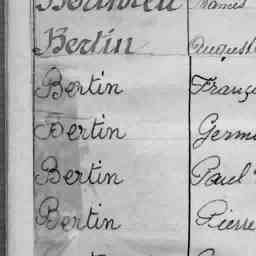 Bertin
Bertin Franç
Bertin Germ
Bertin Paul
Bertin Pierre